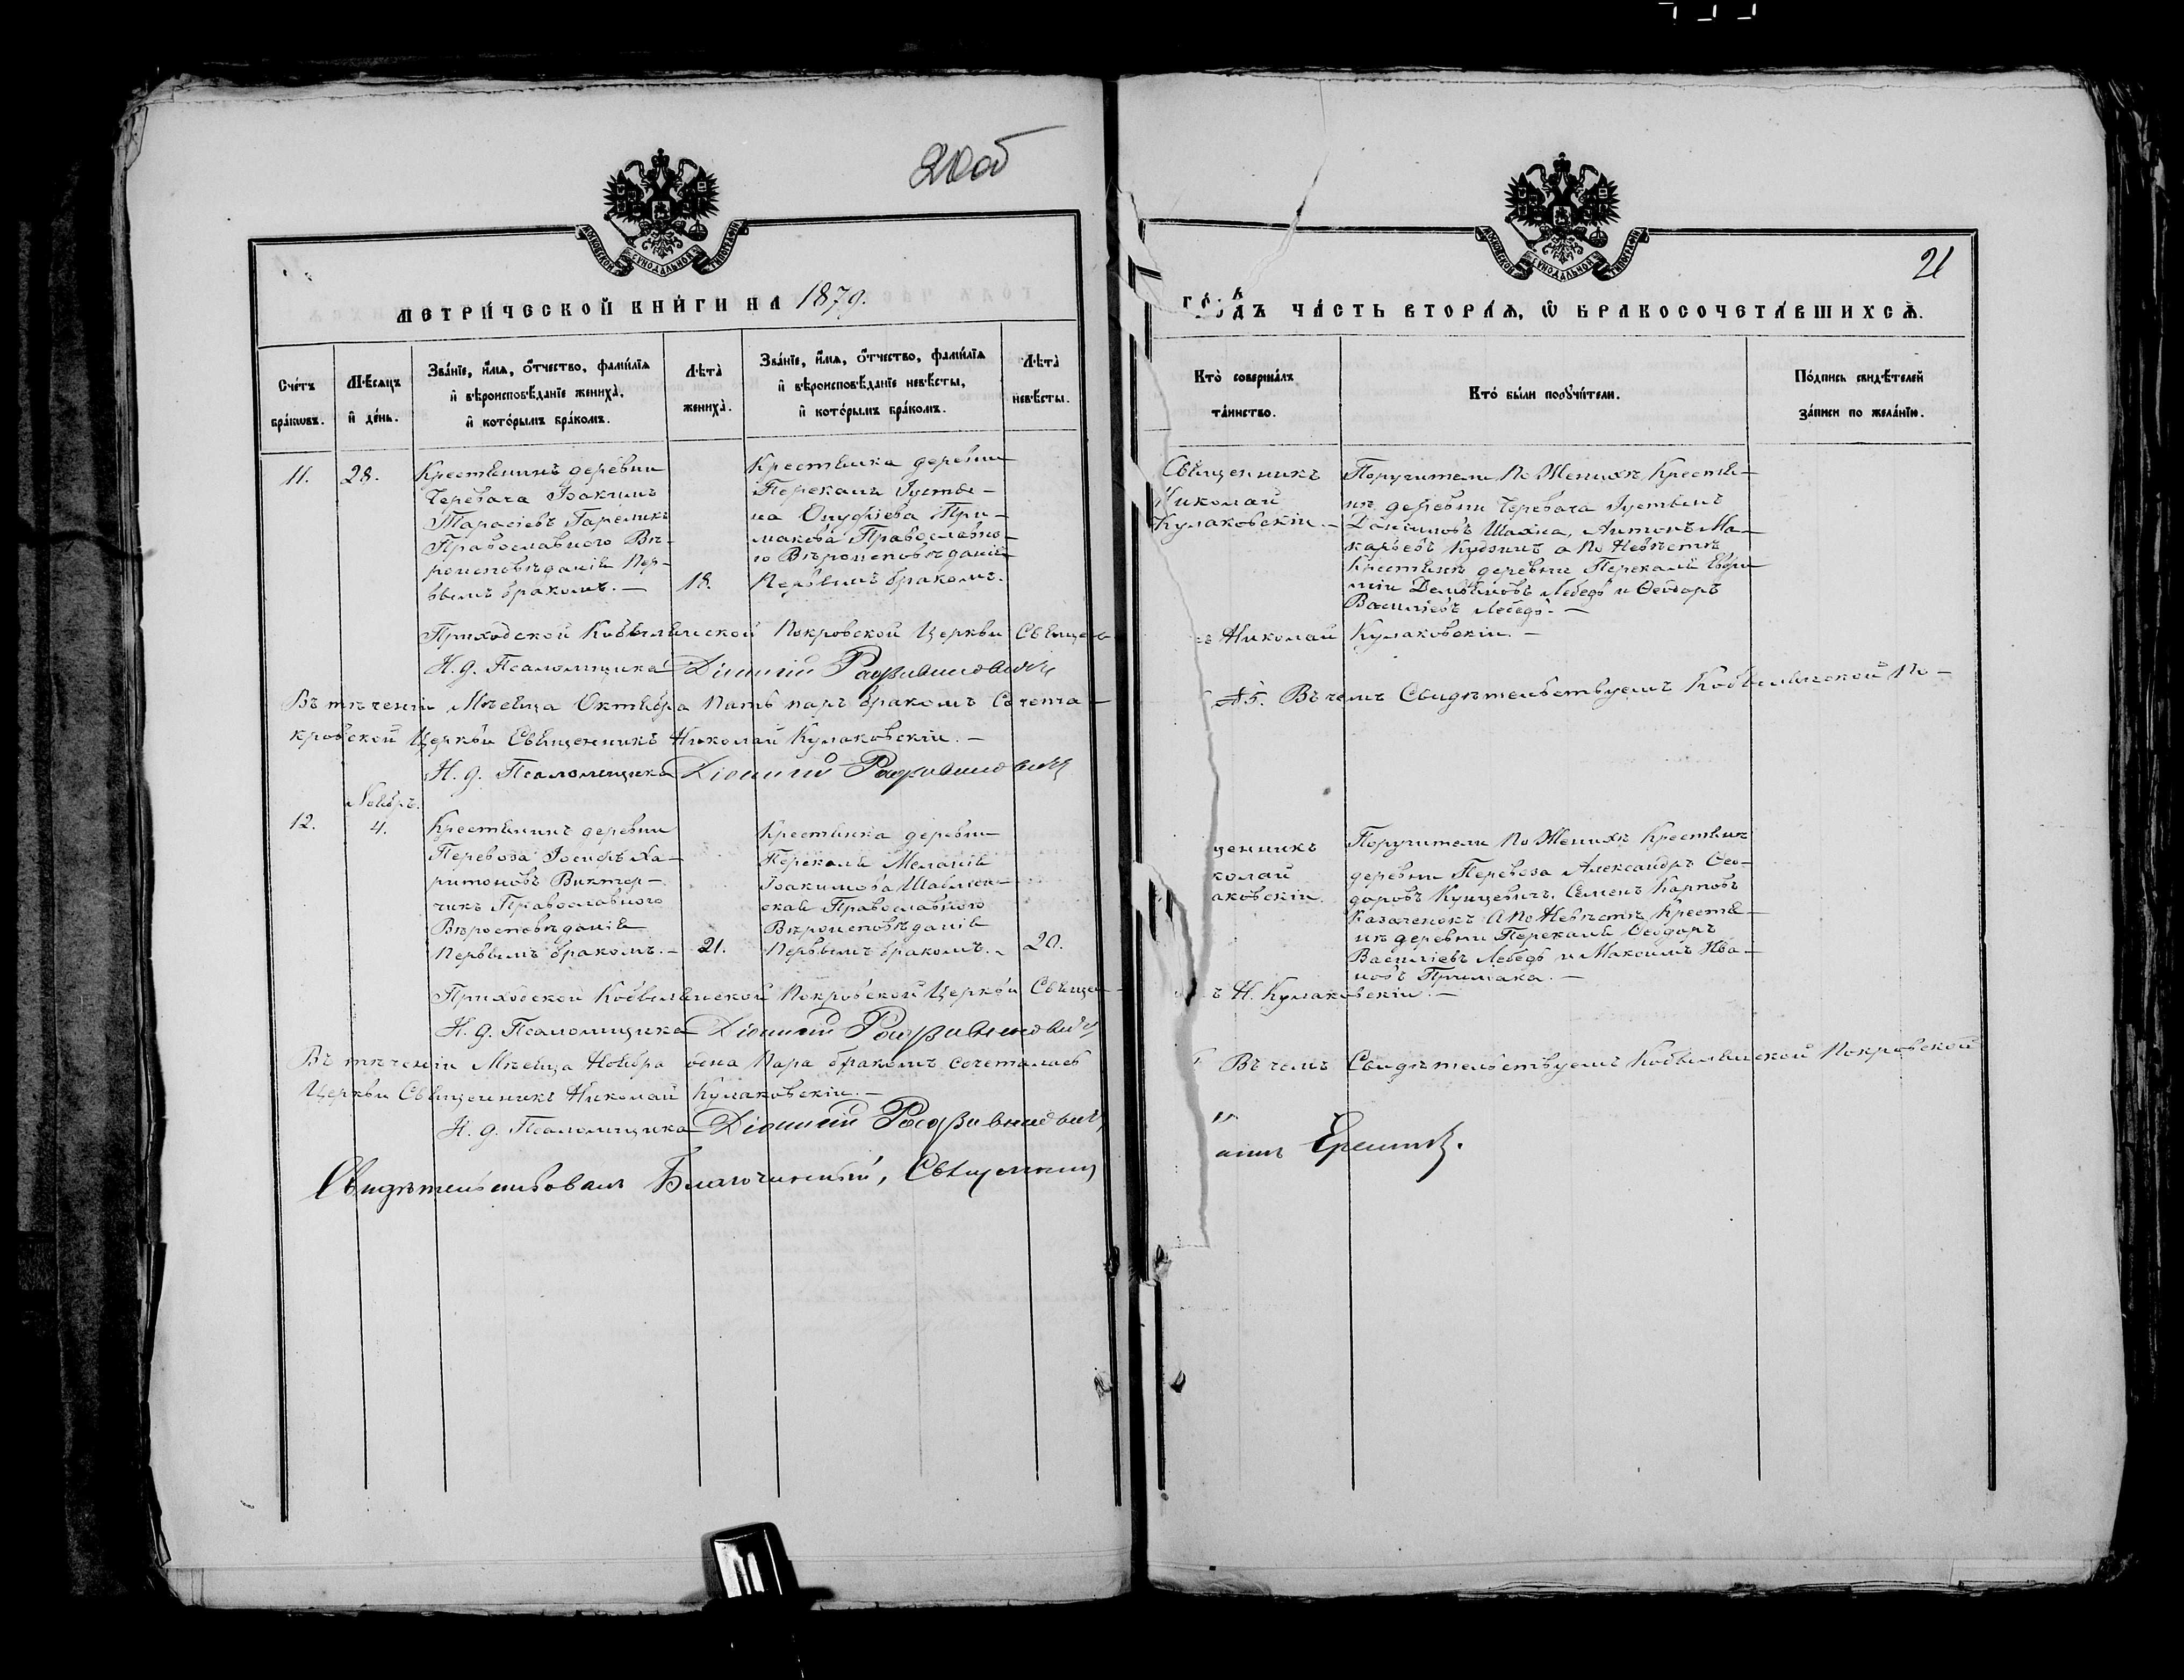 20об
21
МОСКОВСКОЙ СѴНОДАЛЬНОЙ ТИПОГРАФІИ
МОСКОВСКОЙ СѴНОДАЛЬНОЙ ТИПОГРАФІИ
МЕТРИ́ЧЕСКОЙ КНИ́ГИ НА 1879.
ГО́ДЪ ЧА́СТЬ ВТОРАѦ, Ѡ БРАКОСОЧЕТА́ВШИХСѦ.
Сче́тъ бра́кѡвъ.
Мѣ́сѧцъ и де́нь.
Зва́нїе, и́мѧ, ѻ́тчество, фами́лїѧ и вѣроисповѣ́данїе жениха̀, и кото́рымъ бра́комъ.
Лѣ́та жениха̀.
Зва́нїе, и́мѧ, ѻ́тчество, фами́лїѧ и вѣроисповѣ́данїе невѣ́сты, и кото́рымъ бра́комъ.
Лѣ́та невѣ́сты.
Кто̀ соверша́лъ та́инство.
Кто̀ бы́ли порꙋчи́тели.
По́дпись свидѣ́телей за́писи по жела́нїю.
11.
28.
Крестьянинъ деревни
Черевача Іоакимъ
Тарасіевъ Гареликъ
Православнаго Вѣ-
роисповѣданія Пер-
вымъ бракомъ.
18.
Крестьянка деревни
Перекаля Густи-
на Онуфріева При-
макова Православна-
го Вѣроисповѣданія
Первымъ бракомъ.
Священникъ
Николай
Кулаковскій.
Поручители По Женихѣ Крестья-
не деревни Черевача Густинъ
Даниловъ Шахна, Антонъ Ма-
каріевъ Кудзинъ а По Невѣстѣ
Крестьяне деревни Перекаля Евфи-
мій Демьяновъ Лебедь и Ѳеодоръ
Василіевъ Лебедь.
Приходской Кобыльнской Покровской Церкви Священ
Николай Кулаковскій.
И. д. Псаломщика Діонисій
Въ теченіи Мѣсяца Октября Пять паръ бракомъ Сочета-
5. Въ чемъ Свидѣтельствуемъ Кобыльнской По-
кровской Церкви Священникъ Николай Кулаковскій.
И. д. Псаломщика Діонисій
Ноябрь.
12.
4.
Крестьянинъ деревни
Перевоза Іосифъ Ха-
ритоновъ Виктор-
чикъ Православнаго
Вѣроисповѣданія
Первымъ бракомъ.
21.
Крестьянка деревни
Перекаля Меланія
Іоакимова Шавлюк-
ская Православнаго
Вѣроисповѣданія
Первымъ бракомъ.
20.
щенникъ
колай
аковскій.
Поручители По Женихѣ Крестьяне
деревни Перевоза Александръ Ѳео-
доровъ Кунцевичъ, Семенъ Карповъ
Казаченокъ А По Невѣстѣ Крестья-
не деревни Перекаля Ѳеодоръ
Василіевъ Лебедь и Максимъ Ива-
новъ Примака.
Приходской Кобыльнской Покровской Церкви Священ-
ъ Н. Кулаковскій.
И. д. Псаломщика Діонисій
Въ теченіи Мѣсяца Ноября одна Пара бракомъ сочеталась
Въ чемъ Свидѣтельствуемъ Кобыльнской Покровской
Церкви Священникъ Николай Кулаковскій.
И. д. Псаломщика Діонисій
Свидѣтельствовалъ Благочинный, Священникъ